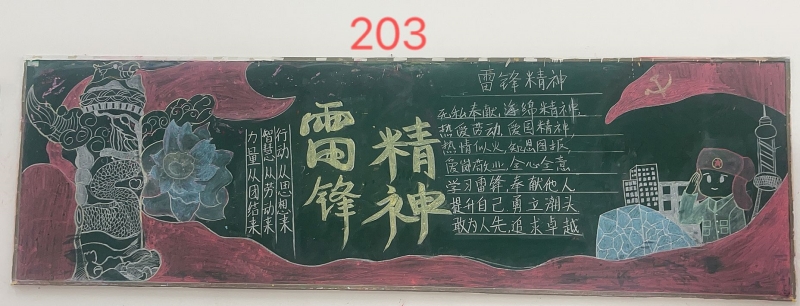 203
雷锋精神
行动从思想来
智慧从劳动来
力量从团结来
雷锋精神
无私奉献,海绵精神,
热爱劳动,爱国精神,
热情似火,知恩图报,
爱岗敬业,全心全意
学习雷锋,奉献他人
提升自己,勇立潮头
敢为人先,追求卓越